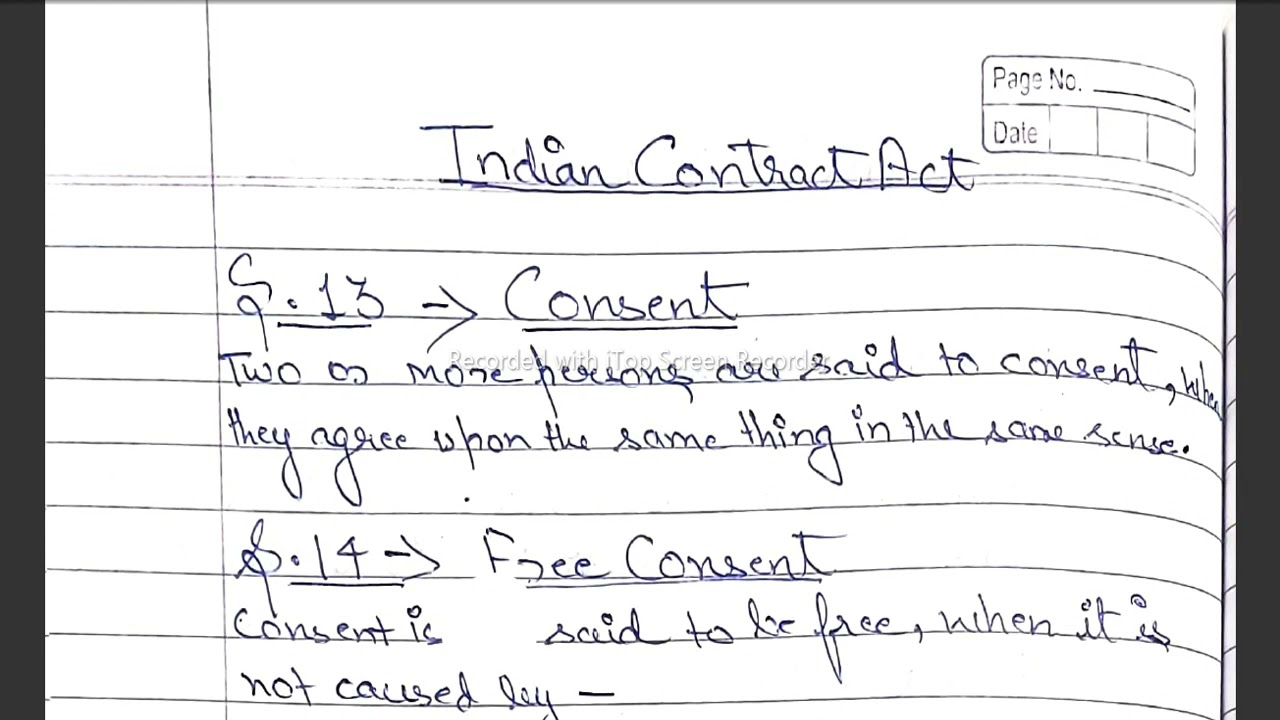 Page No.
Date
Indian Contract Act
S.13 -> Consent
Recorded with iTop Screen Recorder
Two or more persons are said to consent, when
they agree upon the same thing in the same sense.
S.14 -> Free Consent
Consent is said to be free, when it is
not caused by —